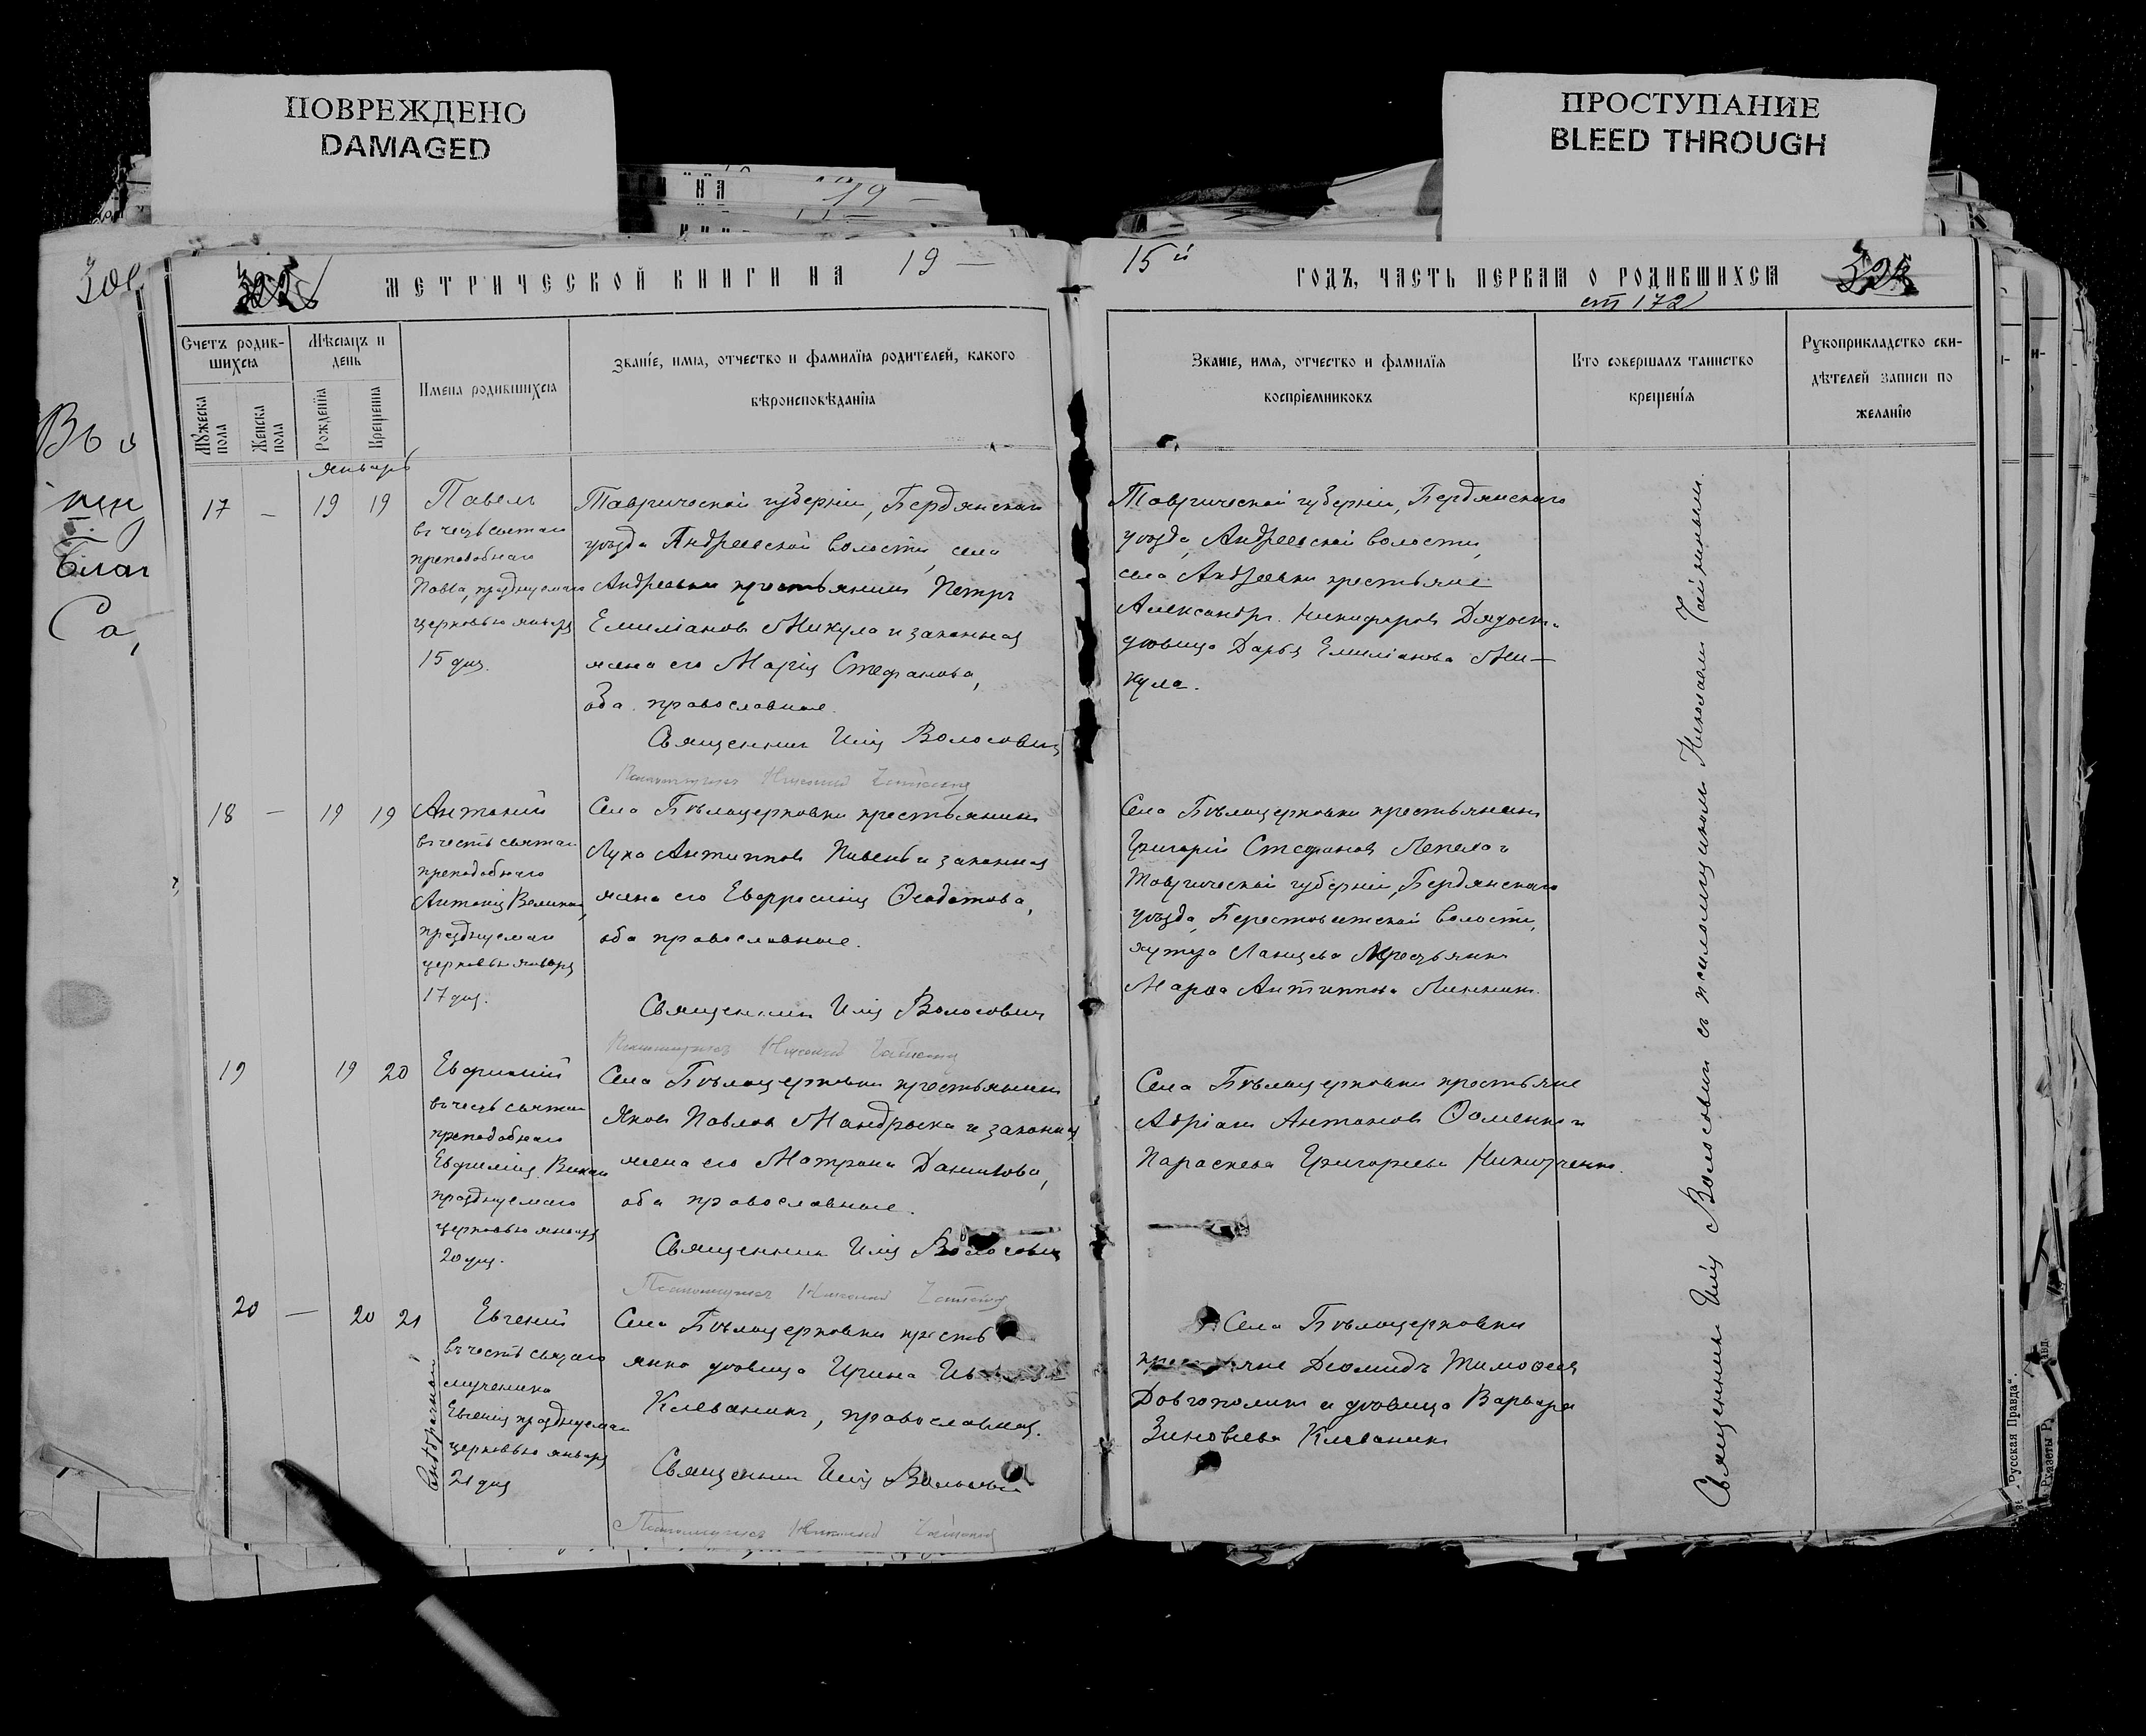 ПОВРЕЖДЕНО
DAMAGED
ПРОСТУПАНИЕ
BLEED THROUGH
МЕТРИЧЕСКОЙ КНИГИ НА 19 —
15й ГОДЪ, ЧАСТЬ ПЕРВАЯ О РОДИВШИХСЯ
ст 172
Счетъ родив-
шихся
Мѣсяцъ и
день
Мужеска
пола
Женска
пола
Рожденія
Крещенія
Имена родившихся
Званіе, имя, отчество и фамилія родителей, какого
вѣроисповѣданія
Званіе, имя, отчество и фамилія
воспріемниковъ
Кто совершалъ таинство
крещенія
Рукоприкладство сви-
дѣтелей записи по
желанію
Январь
17 — 19 19
Павелъ
въ честь святаго
преподобнаго
Павла, празднуемаго
церковью января
15 дня.
Таврической губерніи, Бердянскаго
уѣзда Андреевской волости, села
Андреевки крестьянинъ Петръ
Емиліановъ Микула и законная
жена его Марія Стефанова,
оба православные.
Священникъ Илія Волосович
Таврической губерніи, Бердянскаго
уѣзда, Андреевской волости,
села Андреевки крестьяне
Александръ Никифоровъ
вдовица Дарья Емиліанова Ми-
кула.
18 — 19 19
Антоній
въ честь святаго
преподобнаго
Антонія Великаго,
празднуемаго
церковью января
17 дня.
Села Бѣлоцерковки крестьянинъ
Лука Антиповъ Пивень и законная
жена его Евфросинія Феодотова,
оба православные.
Священникъ Илія Волосович
Села Бѣлоцерковки крестьянинъ
Григорій Стефановъ Лепеха и
Таврической губерніи, Бердянскаго
уѣзда, Берестоватской волости,
хутора крестьянка
Марфа Антипова Линникъ.
19 19 20
Евфимій
въ честь святаго
преподобнаго
Евфимія Великаго
празднуемаго
церковью января
20 дня.
Села Бѣлоцерковки крестьянинъ
Яковъ Павловъ Мандрыка и законная
жена его Матрона Даниилова,
оба православные.
Священникъ Илія Волосович
Села Бѣлоцерковки крестьяне
Адріанъ Антоновъ и
Параскева Григорьева Никитченко.
20 — 20 21
Евгеній
въ честь святаго
мученика
Евгенія празднуемаго
церковью января
21 дня
Села Бѣлоцерковки кресть
янка вдовица Ирина
Клеваникъ, православная.
Священникъ Илія Волосович
Села Бѣлоцерковки
Діомидъ Тимофеевъ
Довгополикъ и вдовица Варвара
Зиновіева Клеваникъ
Священникъ Илія Волосович съ псаломщикомъ Николаемъ
"Русская Правда".